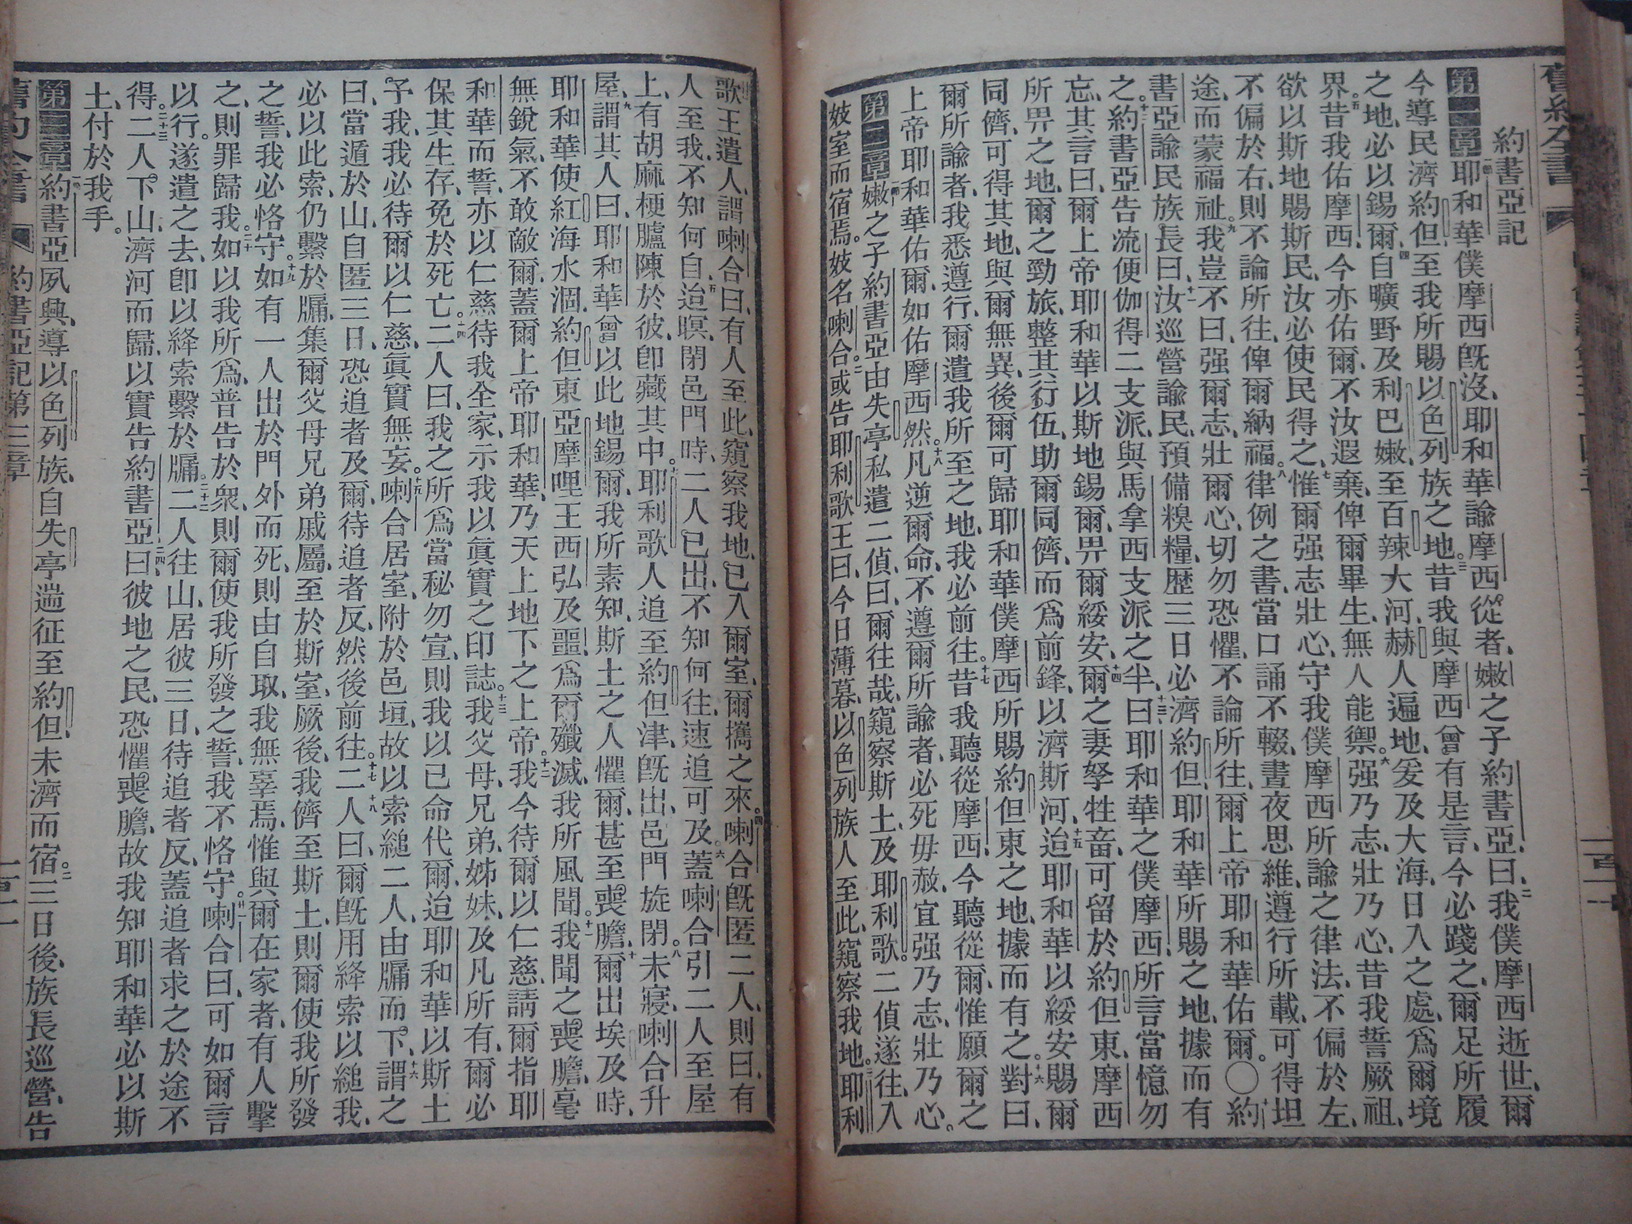 舊約全書
約書亞記
第一章耶和華僕摩西旣沒、耶和華諭摩西從者、嫩之子約書亞、曰、二我僕摩西逝世、爾
今導民濟約但、至我所賜以色列族之地、三昔我與摩西曾有是言、今必踐之、爾足所履
之地、必以錫爾、四自曠野及利巴嫩、至百辣大河、赫人遍地、爰及大海、日入之處、爲爾境
界、五昔我佑摩西、今亦佑爾、不汝遐棄、俾爾畢生、無人能禦、六强乃志、壯乃心、昔我誓厥祖、
欲以斯地賜斯民、汝必使民得之、七惟爾强志壯心、守我僕摩西所諭之律法、不偏於左、
不偏於右、則不論所往、俾爾納福、八律例之書、當口誦不輟、晝夜思維、遵行所載、可得坦
途、而蒙福祉、九我豈不曰、强爾志、壯爾心、切勿恐懼、不論所往、爾上帝耶和華佑爾。〇十約
書亞諭民族長曰、十一汝巡營諭民、預備糗糧、歷三日必濟約但、耶和華所賜之地、據而有
之、十二約書亞告流便伽得二支派、與馬拿西支派之半、曰、十三耶和華之僕摩西所言、當憶勿
忘、其言曰、爾上帝耶和華、以斯地錫爾、畀爾綏安、十四爾之妻孥牲畜、可留於約但東、摩西
所畀之地、爾之勁旅、整其行伍、助爾同儕、而爲前鋒、以濟斯河、十五迨耶和華以綏安賜爾
同儕、可得其地、與爾無異、後爾可歸耶和華僕摩西所賜、約但東之地、據而有之。十六對曰、
爾所諭者、我悉遵行、爾遣我所至之地、我必前往、十七昔我聽從摩西、今聽從爾、惟願爾之
上帝耶和華佑爾、如佑摩西然。十八凡逆爾命、不遵爾所諭者、必死毋赦、宜强乃志、壯乃心。
第二章嫩之子約書亞、由失亭私遣二偵、曰、爾往哉、窺察斯土、及耶利歌。二偵遂往、入
妓室而宿焉。妓名喇合、二或告耶利歌王曰、今日薄暮、以色列族人至此、窺察我地、三耶利
歌王遣人、謂喇合曰、有人至此、窺察我地、已入爾室、爾攜之來、四喇合旣匿二人、則曰、有
人至我、不知何自、五迨暝、閉邑門時、二人已出、不知何往、速追可及、六蓋喇合引二人至屋
上、有胡麻梗臚陳於彼、卽藏其中、七耶利歌人追至約但津、旣出、邑門旋閉、八未寢、喇合升
屋、九謂其人曰、耶和華曾以此地錫爾、我所素知、斯土之人懼爾、甚至喪膽、十爾出埃及時、
耶和華使紅海水涸、約但東、亞摩哩王西弘及噩、爲爾殲滅、我所風聞、十一我聞之、喪膽、毫
無銳氣、不敢敵爾、蓋爾上帝耶和華、乃天上地下之上帝、十二我今待爾以仁慈、請爾指耶
和華而誓、亦以仁慈待我全家、示我以眞實之印誌、十三我父母、兄弟姊妹、及凡所有、爾必
保其生存、免於死亡、十四二人曰、我之所爲、當秘勿宣、則我以己命代爾、迨耶和華以斯土
予我、我必待爾以仁慈、眞實無妄、十五喇合居室、附於邑垣、故以索縋二人、由牖而下、十六謂之
曰、當遁於山、自匿三日、恐追者及爾、待追者反、然後前往、十七二人曰、十八爾旣用絳索以縋我、
必以此索、仍繫於牖、集爾父母兄弟戚屬、至於斯室、厥後我儕至斯土、則爾使我所發
之誓、我必恪守、十九如有一人出於門外而死、則由自取、我無辜焉、惟與爾在家者、有人擊
之、則罪歸我、二十如以我所爲、普告於衆、則爾使我所發之誓、我不恪守、二一喇合曰、可如爾言
以行、遂遣之去、卽以絳索繫於牖、二二二人往山、居彼三日、待追者反、蓋追者求之於途、不
得、二三二人下山、濟河而歸、以實告約書亞、二四曰、彼地之民、恐懼喪膽、故我知耶和華必以斯
土、付於我手。
第三章約書亞夙興、導以色列族、自失亭遄征至約但、未濟而宿、二三日後、族長巡營、告
舊約全書
約書亞記第三章